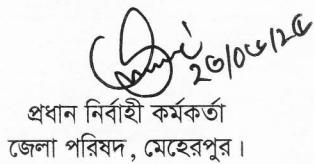 ২৩/০৬/২৫
প্রধান নির্বাহী কর্মকর্তা
জেলা পরিষদ, মেহেরপুর।